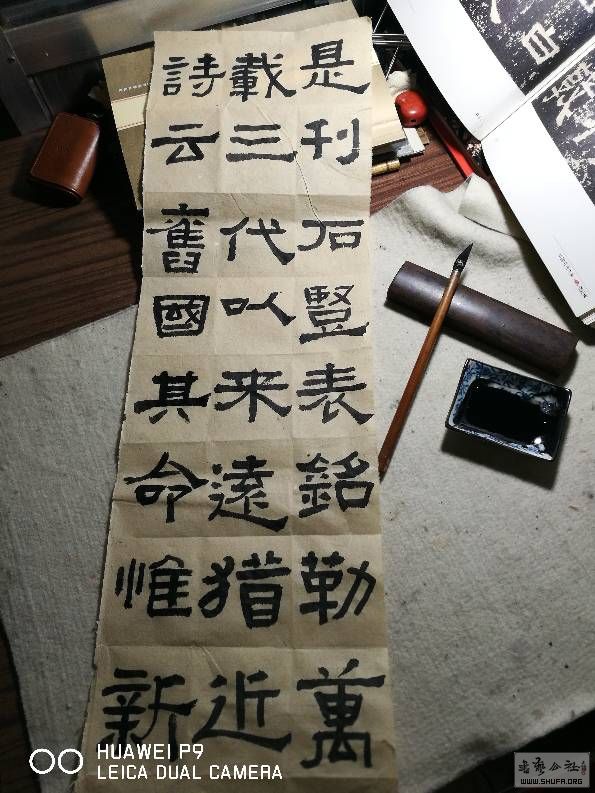 是刊石豎表銘勒萬
載三代以来遠猶近
詩云舊國其命惟新
HUAWEI P9
LEICA DUAL CAMERA
书艺公社
WWW.SHUFA.ORG